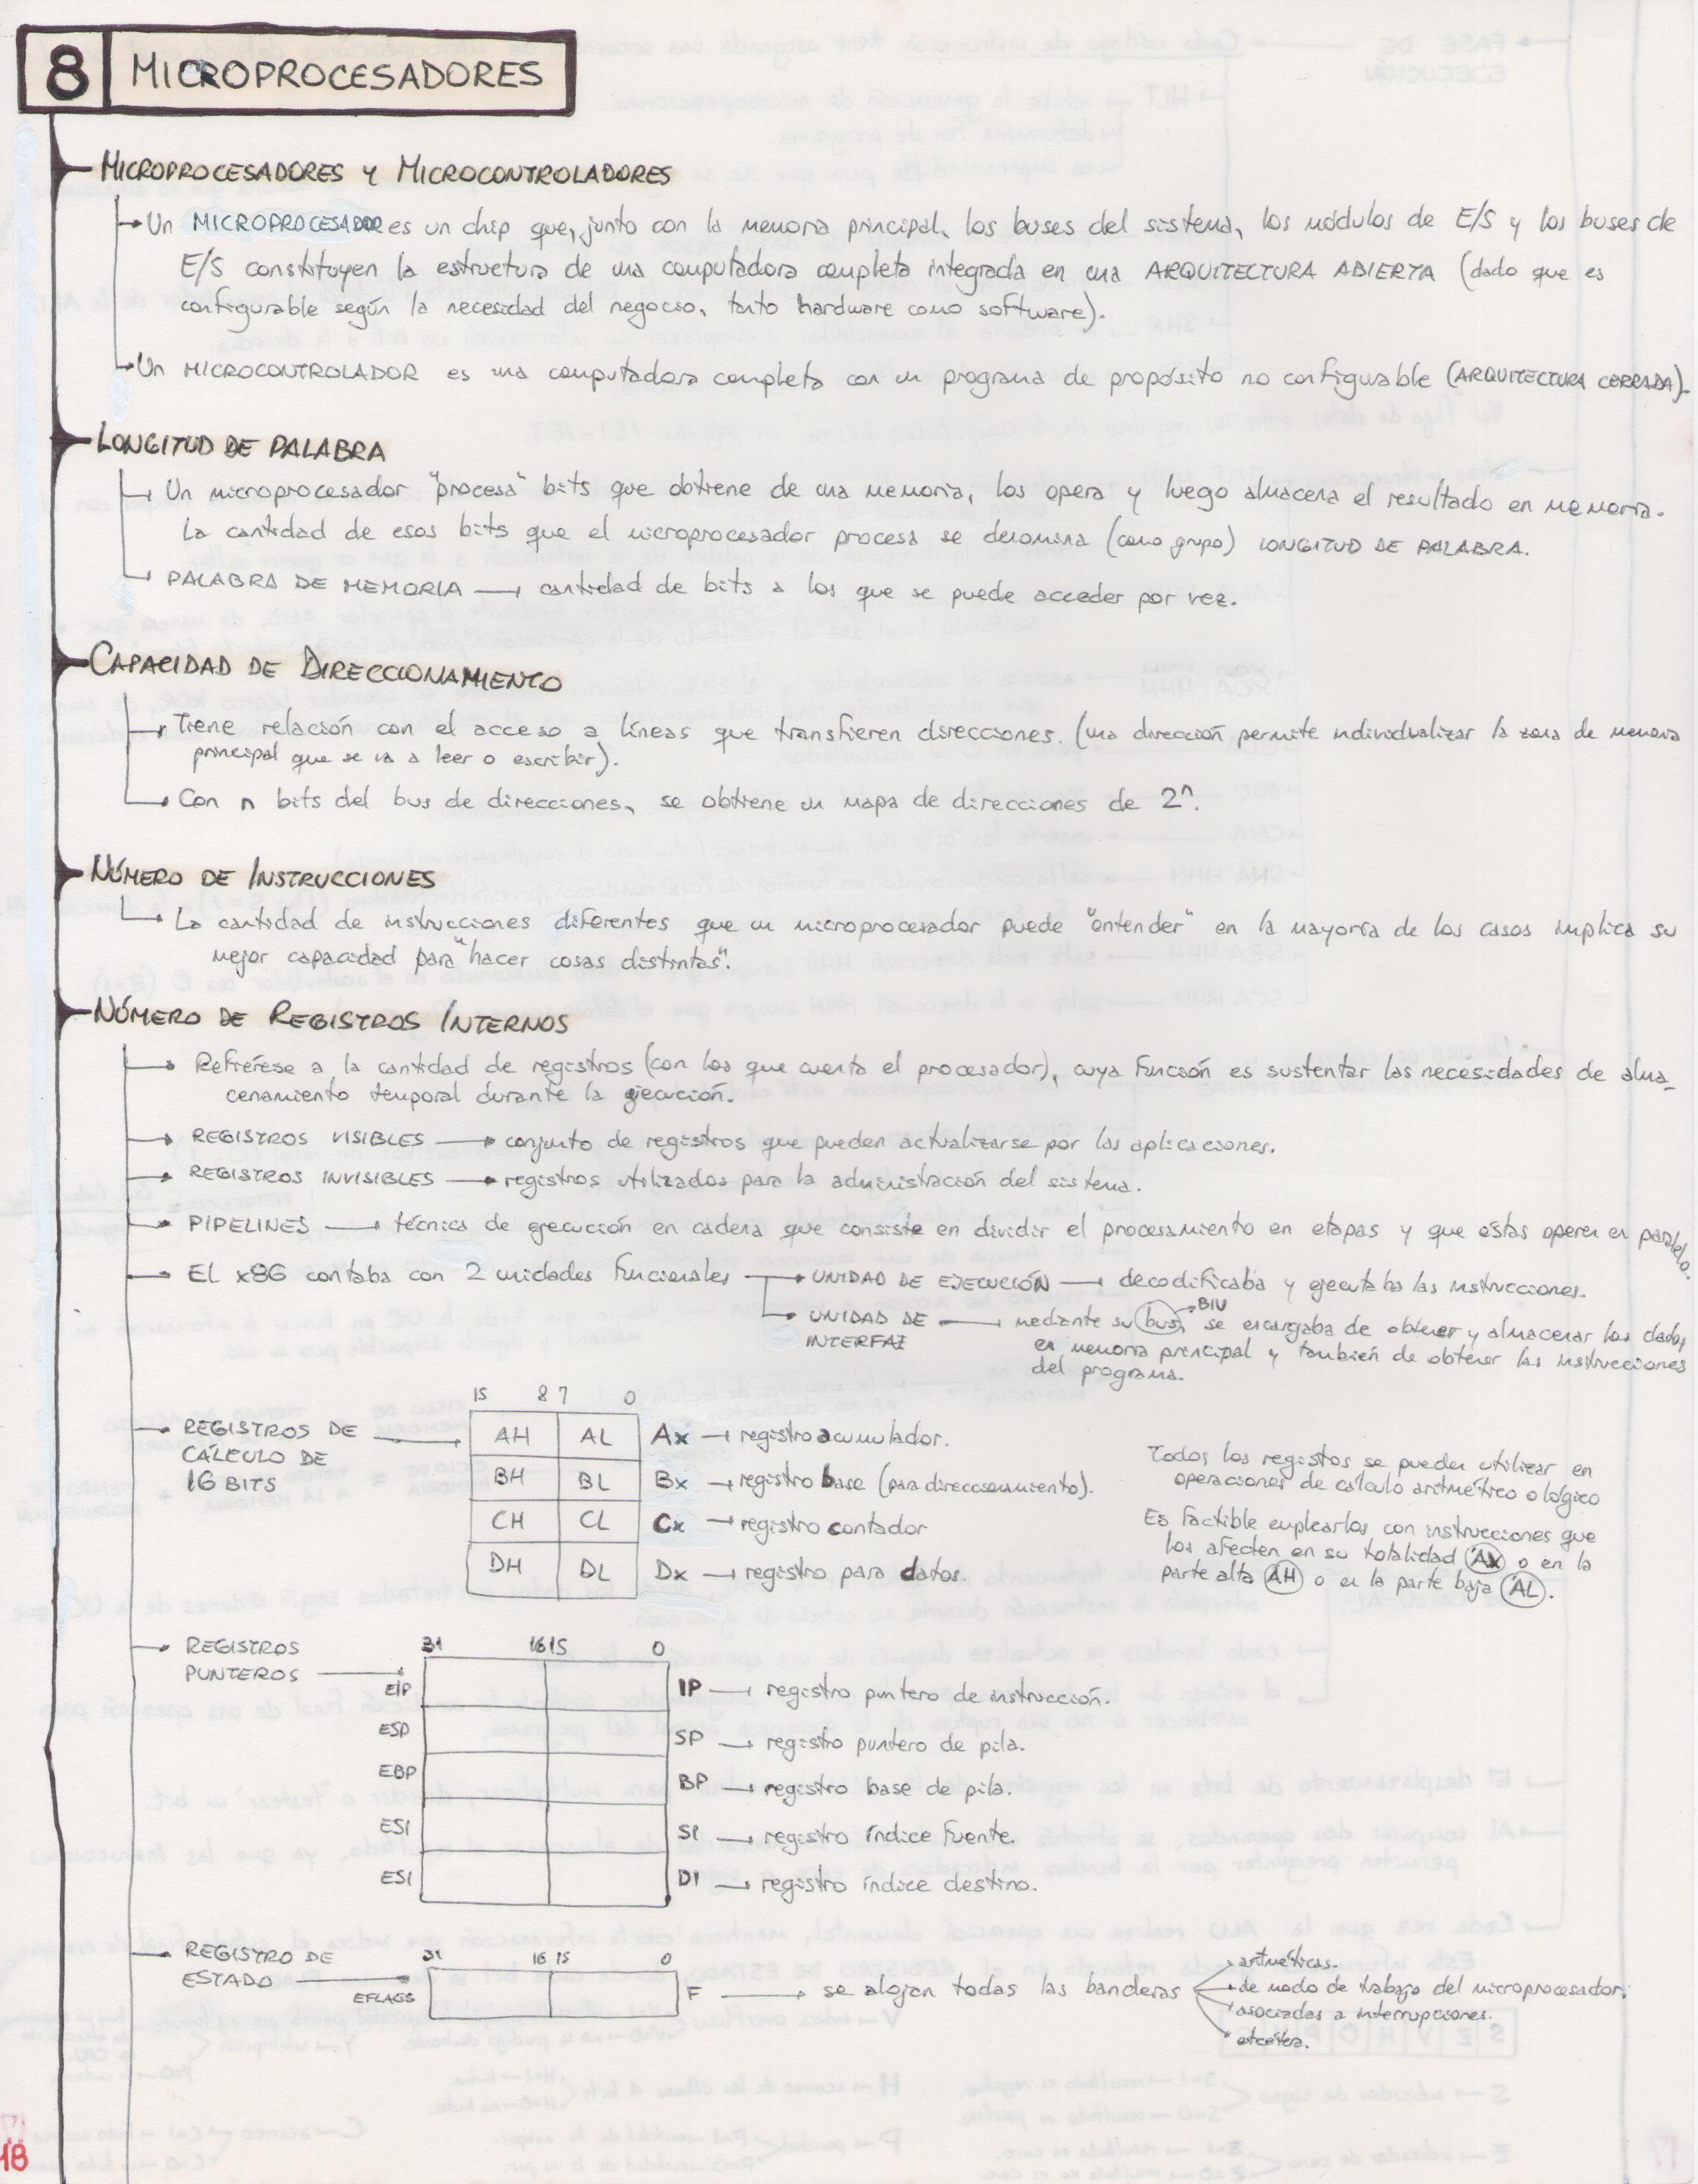 8 MICROPROCESADORES
MICROPROCESADORES Y MICROCONTROLADORES
Un MICROPROCESADOR es un chip que, junto con la memoria principal, los buses del sistema, los módulos de E/S y los buses de
E/S constituyen la estructura de una computadora completa integrada en una ARQUITECTURA ABIERTA (dado que es
configurable según la necesidad del negocio, tanto hardware como software).
Un MICROCONTROLADOR es una computadora completa con un programa de propósito no configurable (ARQUITECTURA CERRADA).
LONGITUD DE PALABRA
Un microprocesador "procesa" bits que obtiene de una memoria, los opera y luego almacena el resultado en memoria.
La cantidad de esos bits que el microprocesador procesa se denomina (como grupo) LONGITUD DE PALABRA.
PALABRA DE MEMORIA → cantidad de bits a los que se puede acceder por vez.
CAPACIDAD DE DIRECCIONAMIENTO
Tiene relación con el acceso a líneas que transfieren direcciones. (una dirección permite individualizar la zona de memoria
principal que se va a leer o escribir).
Con n bits del bus de direcciones, se obtiene un mapa de direcciones de 2^n.
NÚMERO DE INSTRUCCIONES
La cantidad de instrucciones diferentes que un microprocesador puede "entender" en la mayoría de los casos implica su
mejor capacidad para "hacer cosas distintas".
NÚMERO DE REGISTROS INTERNOS
Refiérese a la cantidad de registros (con los que cuenta el procesador), cuya función es sustentar las necesidades de alma-
cenamiento temporal durante la ejecución.
REGISTROS VISIBLES → conjunto de registros que pueden actualizarse por las aplicaciones.
REGISTROS INVISIBLES → registros utilizados para la administración del sistema.
PIPELINES → técnica de ejecución en cadena que consiste en dividir el procesamiento en etapas y que éstas operen en paralelo.
El x86 contaba con 2 unidades funcionales → UNIDAD DE EJECUCIÓN → decodificaba y ejecutaba las instrucciones.
→ BIU
UNIDAD DE → mediante su bus, se encargaba de obtener y almacenar los datos
INTERFAZ en memoria principal y también de obtener las instrucciones
del programa.
15 8 7 0
REGISTROS DE → AH AL Ax → registro acumulador.
CÁLCULO DE
16 BITS BH BL Bx → registro base (para direccionamiento).
CH CL Cx → registro contador
DH DL Dx → registro para datos.
Todos los registos se pueden utilizar en
operaciones de cálculo aritmético o lógico
Es factible emplearlos con instrucciones que
los afecten en su totalidad AX o en la
parte alta AH o en la parte baja AL.
REGISTROS 31 16 15 0
PUNTEROS →
EIP IP → registro puntero de instrucción.
ESP SP → registro puntero de pila.
EBP BP → registro base de pila.
ESI SI → registro índice fuente.
ESI DI → registro índice destino.
REGISTRO DE 31 16 15 0
ESTADO → EFLAGS F → se alojan todas las banderas
aritméticas.
de modo de trabajo del microprocesador.
asociadas a interrupciones.
etcétera.
18